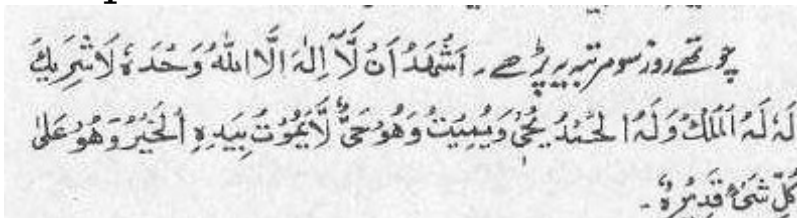 چوتھے روز سو مرتبہ یہ پڑھے ۔ اَشْهَدُ اَنْ لَّآ اِلٰهَ اِلَّا اللهُ وَحْدَهٗ لَاشَرِيكَ
لَهٗ لَهُ الْمُلْكُ وَلَهُ الْحَمْدُ يُحْيٖ وَيُمِيتُ وَهُوَحَيٌّ لَّا يَمُوْتُ بِيَدِهِ الْخَيْرُ وَهُوَ عَلٰى
كُلِّ شَیْءٍ قَدِيْرٌ ۔